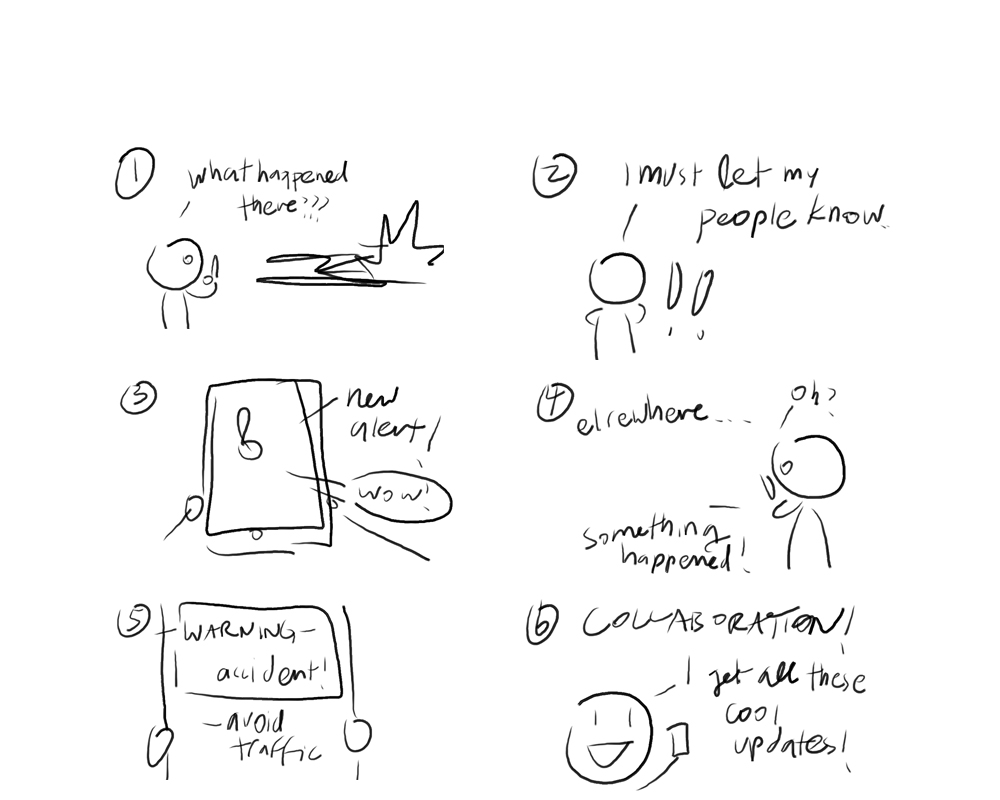 1
what happened
there???
2
I must let my
people know.
!!
3
new
alert!
wow!
4
elsewhere...
Oh?
something
happened!
5
-WARNING-
accident!
-avoid
traffic
6
COLLABORATION!
I get all these
cool
updates!